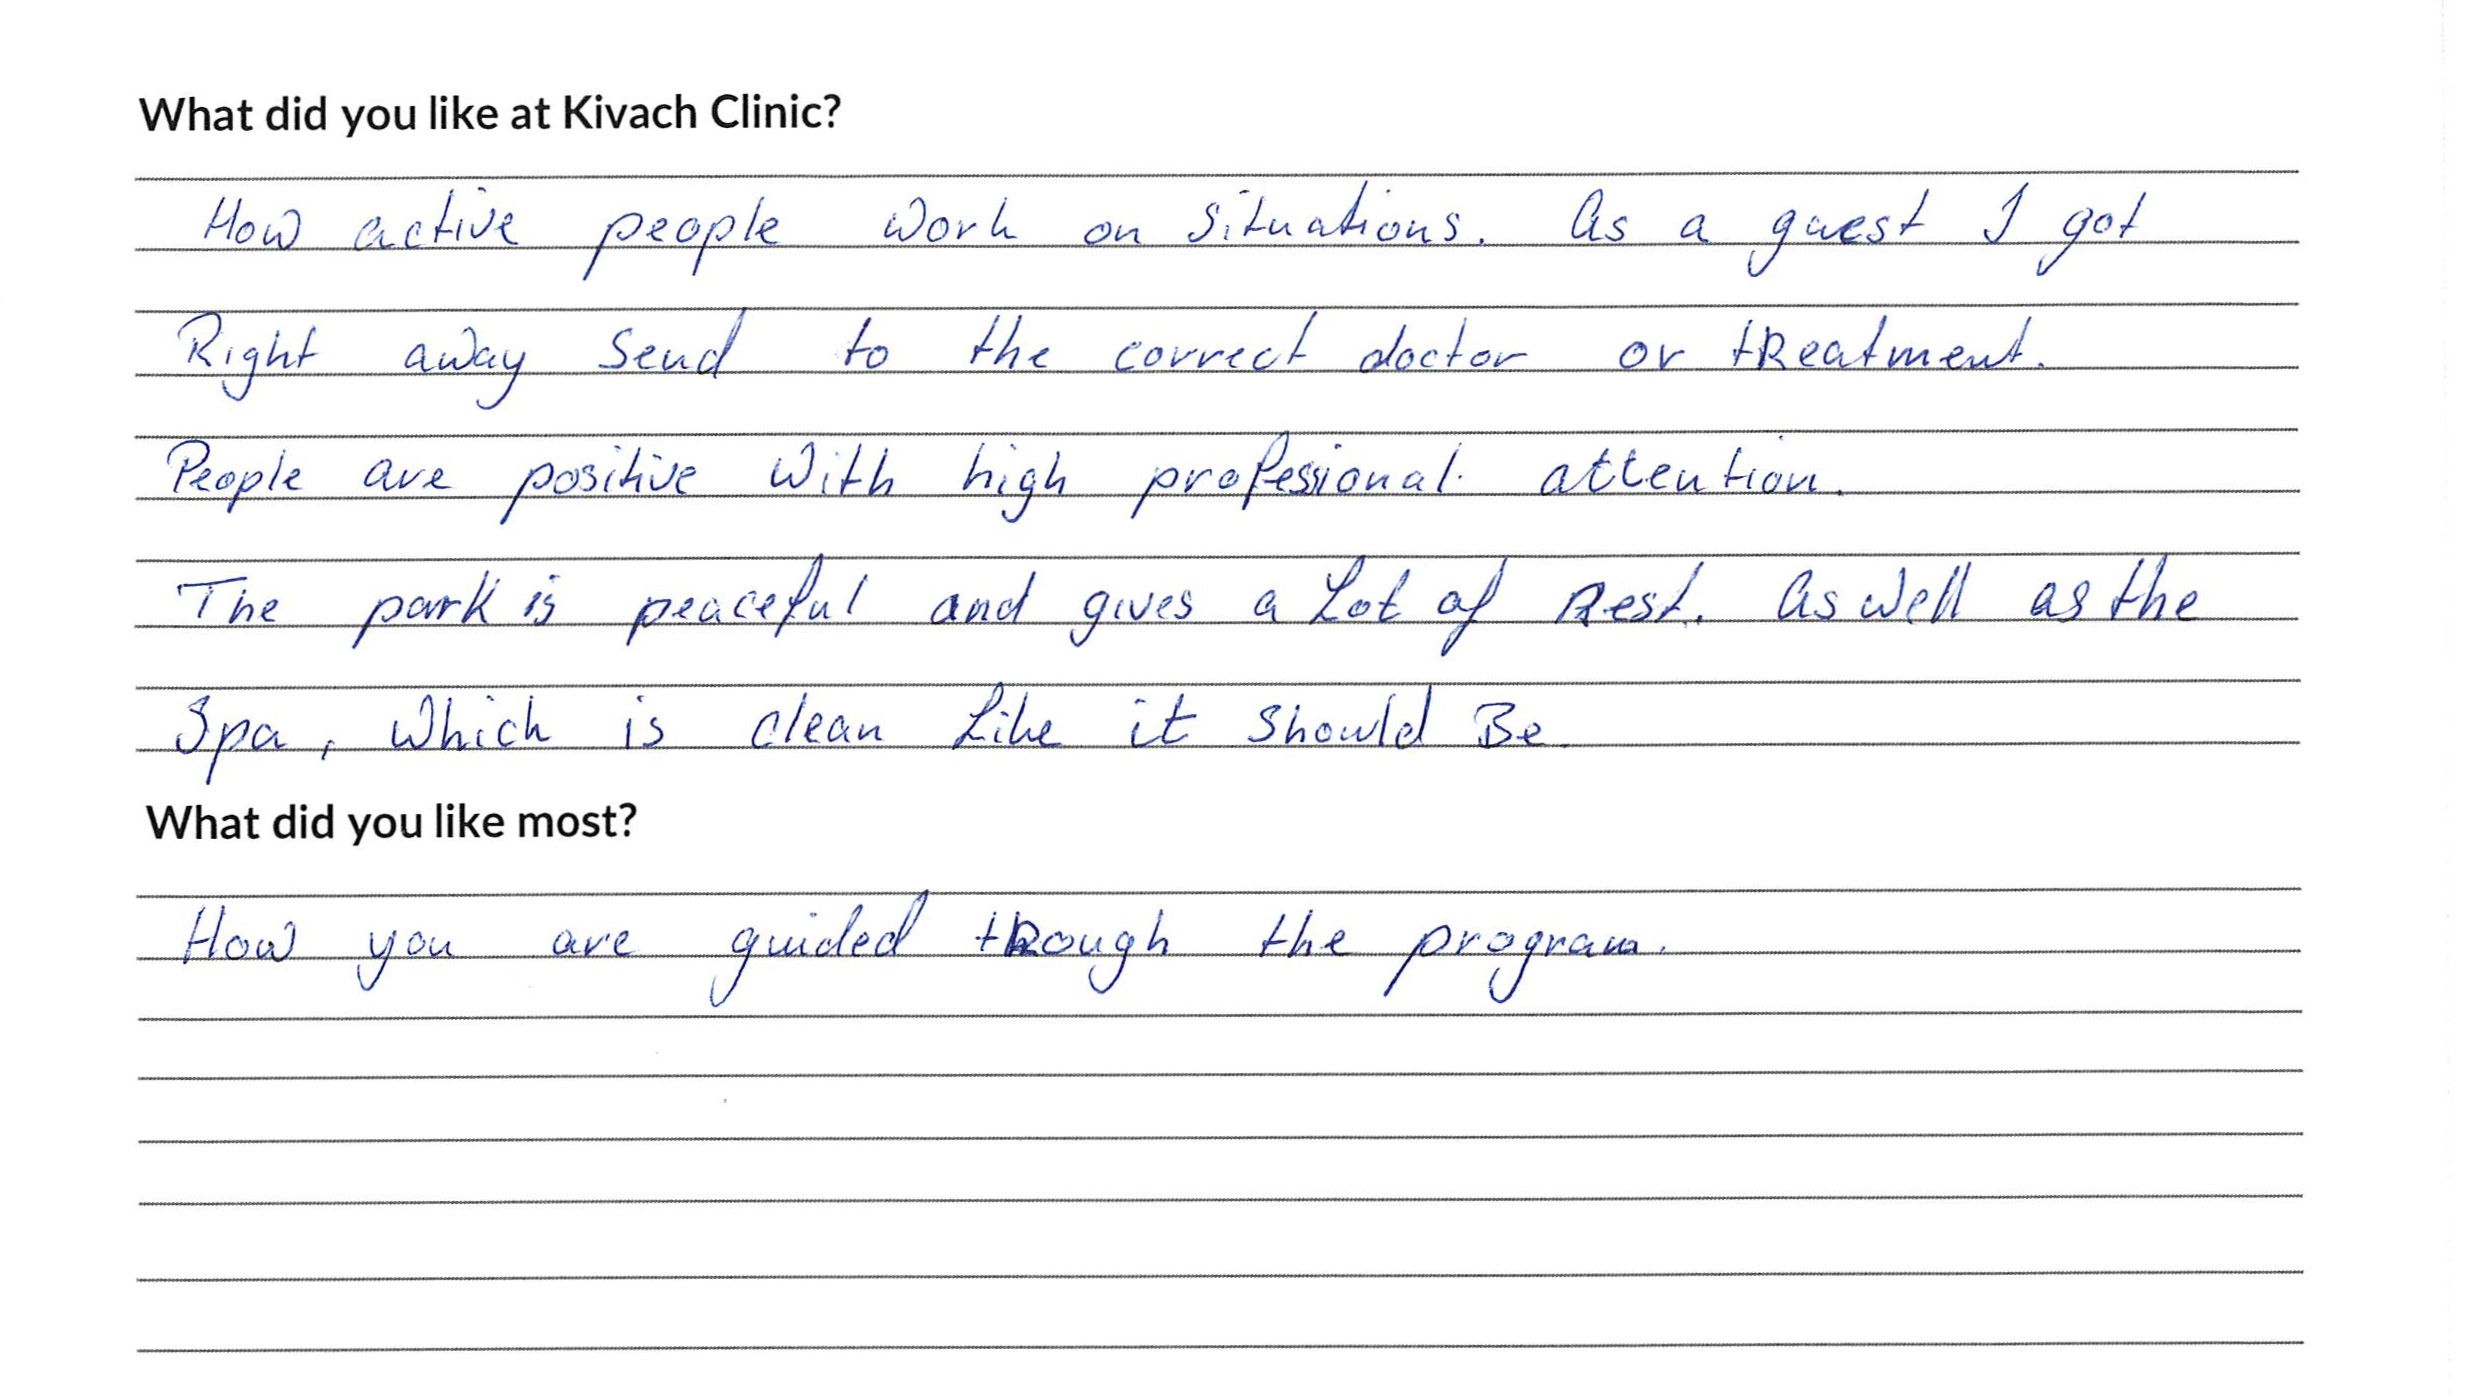 What did you like at Kivach Clinic?
How active people work on situations. As a guest I got
Right away send to the correct doctor or tReatment.
People are positive with high professional attention.
The park is peaceful and gives a Lot of Rest. As well as the
Spa, which is clean Like it should Be.
What did you like most?
How you are guided through the program.